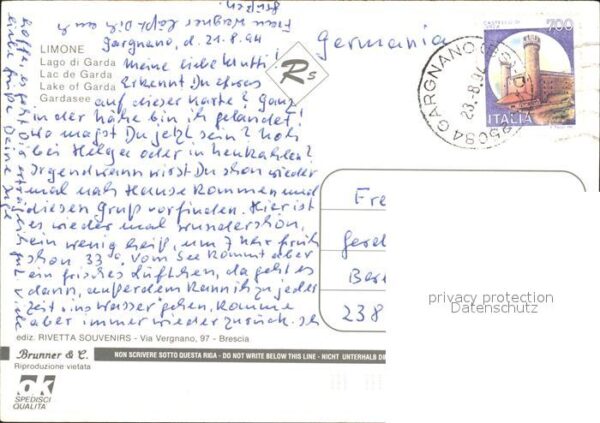 Frau Wagner läßt Dich auch
grüßen.
LIMONE
Lago di Garda
Lac de Garda
Lake of Garda
Gardasee
Gargnano, d. 21.8.94
Meine liebe Mutti!
Erkennst Du etwas
auf dieser Karte? Ganz
in der Nähe bin ich gelandet!
Wo magst Du jetzt sein? Noch
bei Helga oder in Neukahlen?
Irgendwann wirst Du schon wieder
mal nach Hause kommen und
diesen Gruß vorfinden. Hier ist
es wieder mal wunderschön,
ein wenig heiß, um 7 Uhr früh
schon 33°. Vom See kommt aber
ein frisches Lüftchen, da geht es
dann, außerdem kann ich zu jeder
Zeit ins Wasser gehen, komme
aber immer wieder zurück. Ich
hoffe, es geht Dir erträglich gut. Viele
liebe Grüße Deine
Rs
Germania
CASTELLO DI
700
ITALIA
25084 GARGNANO
23.8.94
Fre
Ber
238
privacy protection
Datenschutz
ediz. RIVETTA SOUVENIRS - Via Vergnano, 97 - Brescia
Brunner & C.
Riproduzione vietata
NON SCRIVERE SOTTO QUESTA RIGA - DO NOT WRITE BELOW THIS LINE - NICHT UNTERHALB DI
ok
SPEDISCI
QUALITÀ